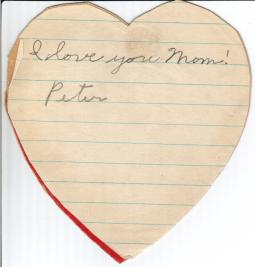 I love you Mom!
Peter